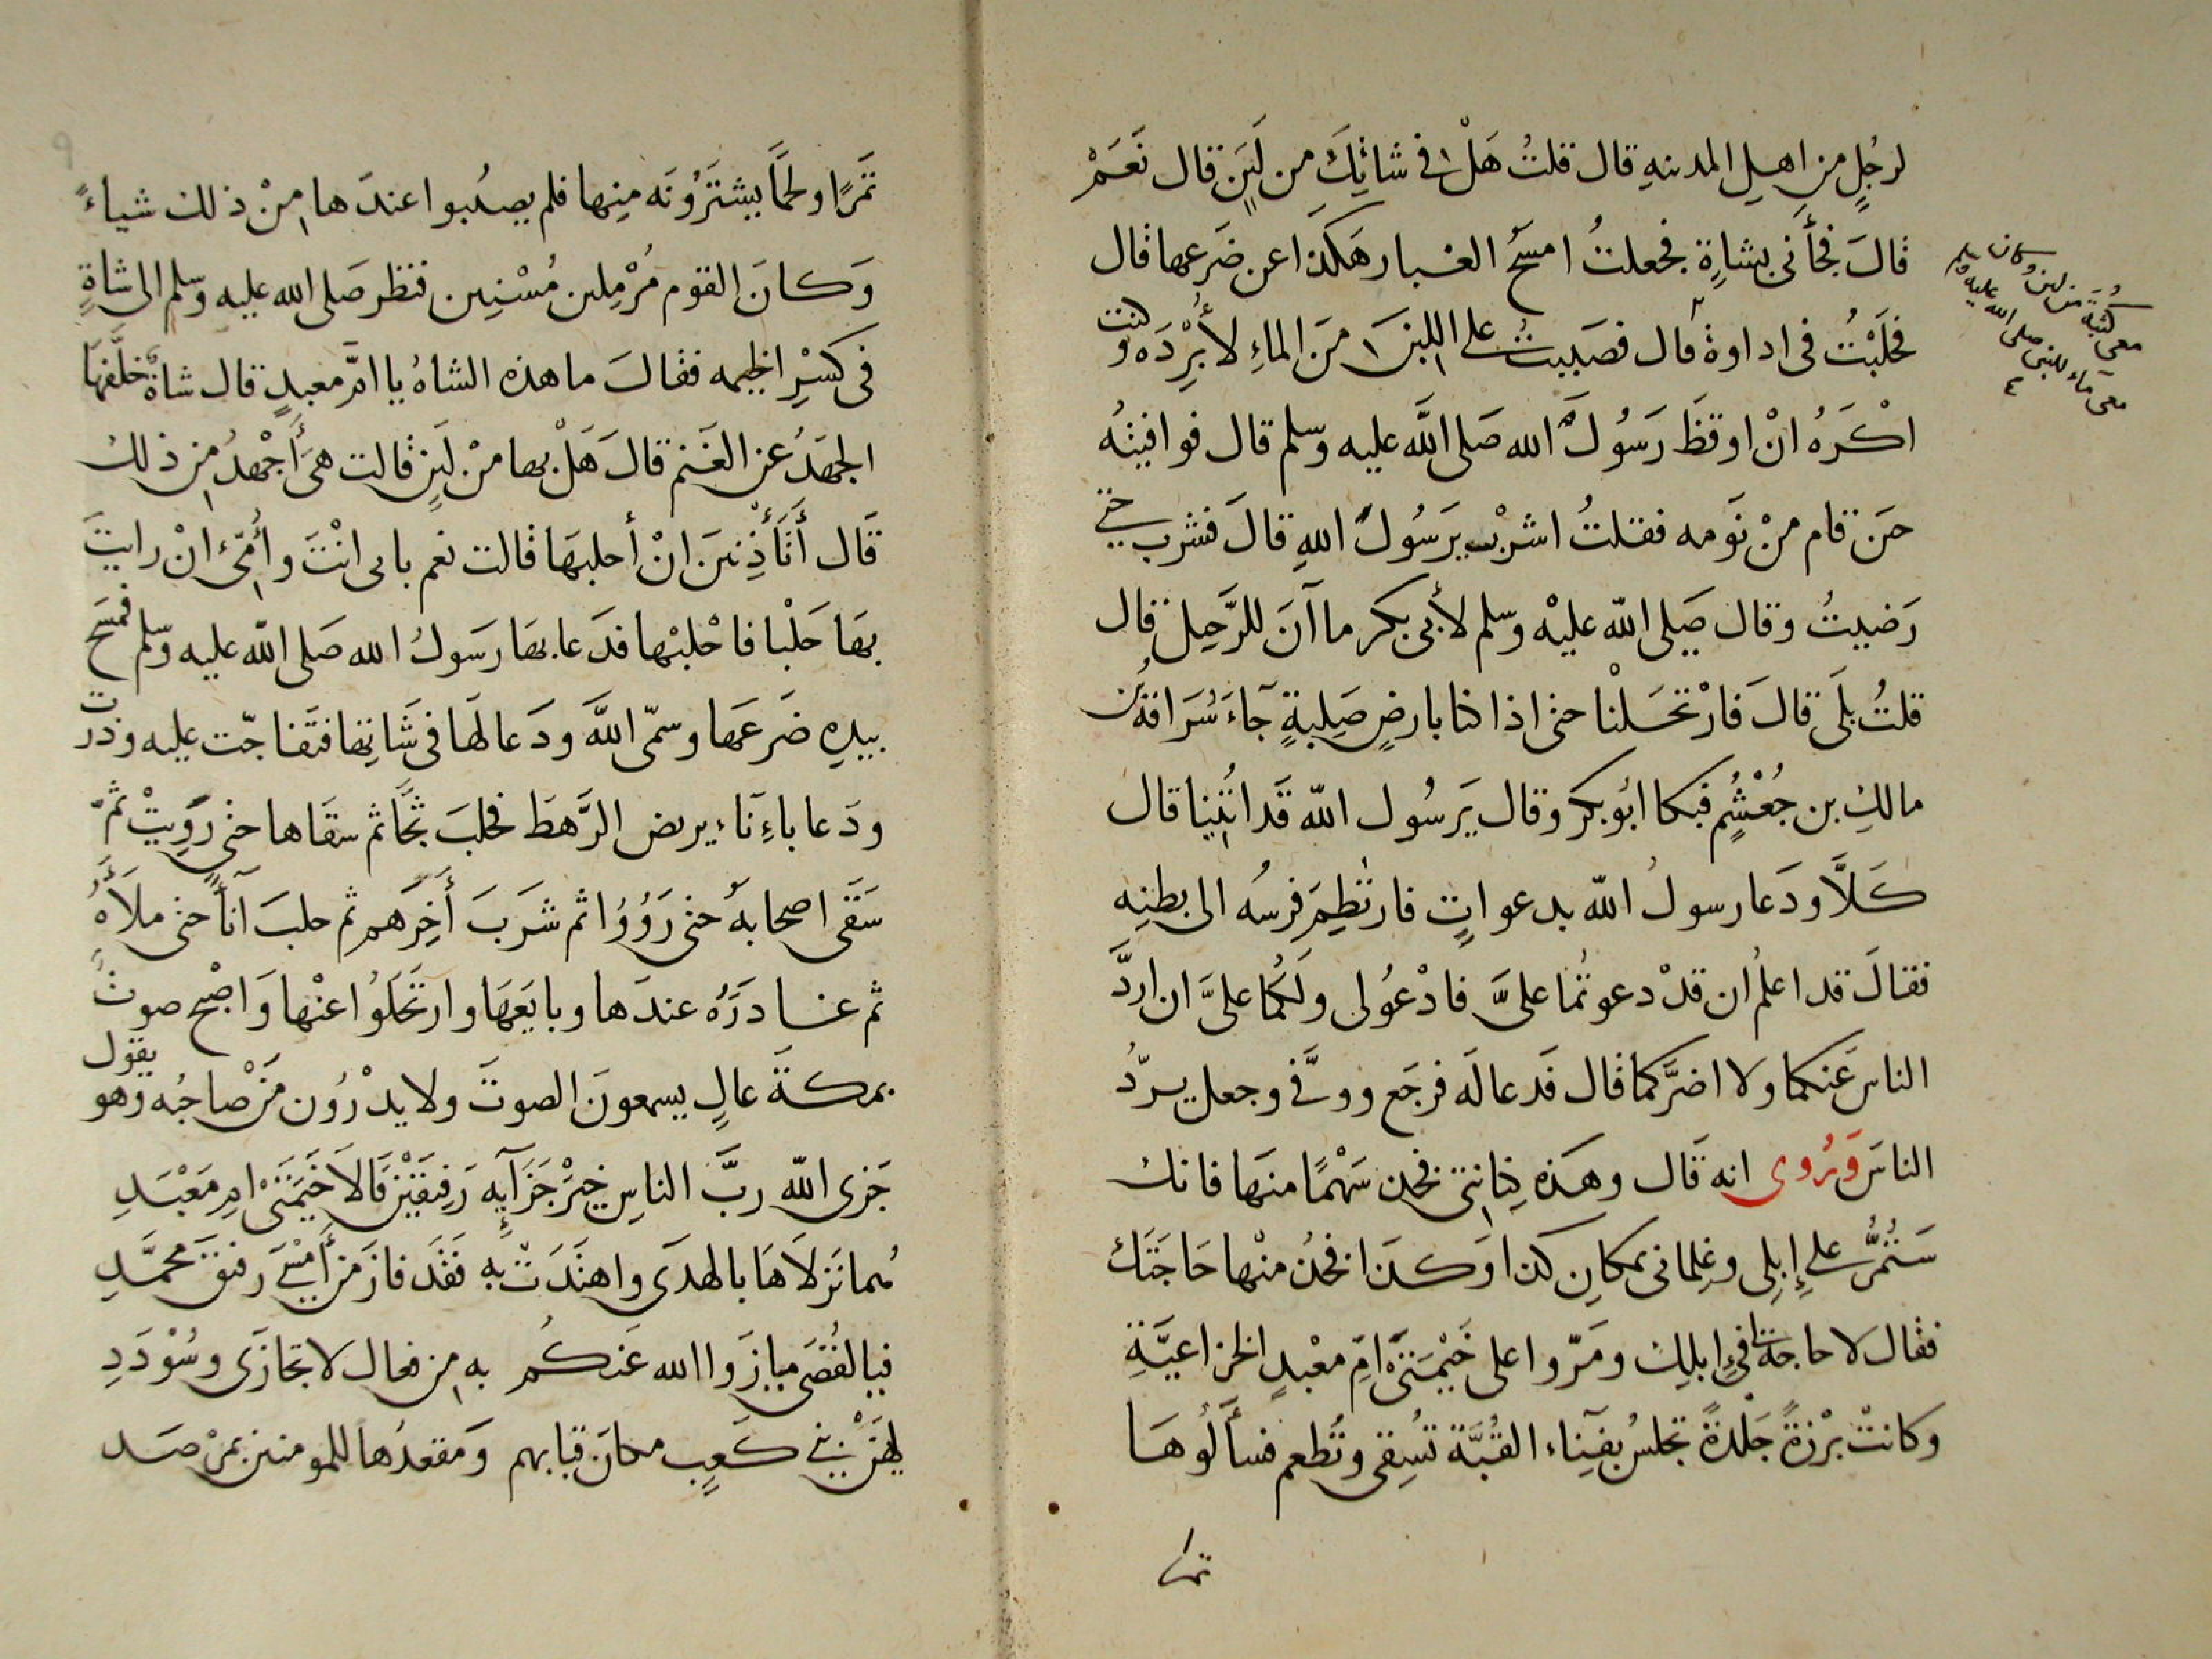 لرجُلٍ من اهل المدينهِ قال قلتُ هَلْ في شاتِكَ من لَبَنٍ قال نَعَمْ
قالَ فجأنى بشاةٍ فجعلتُ امسحُ الغبار هَكَذا عن ضَرعها قال
فحَلَبْتُ فى اداوة قال فصَبيتُ على اللبن من الماءِ لأُبْرِدَه وكنت
اكْرَهُ انْ اوقظَ رَسُولَ الله صَلى اللَّه عليه وسلم قال فوافيتُه
حين قام منْ نَومه فقلتُ اشرَبْ يرَسُولَ اللهِ قالَ فشرب حتى
رَضيتُ وقال صَلى اللّه عليْه وسلم لأبى بكر ما آنَ للرَّحِيل قال
قلتُ بلَى قالَ فَارْتحَلْنا حتى اذا كنا بارضٍ صَلبةٍ جَآءَ سُرَاقةُ بن
مالكِ بن جُعْشُمٍ فبكا ابُو بكر وقال يَرسُول اللّه قَد اتُينا قال
كَلاَّ ودَعا رسولُ اللّه بدعواتٍ فارتطَمَ فرسُه الى بطنِه
فقالَ قد اعلمُ ان قدْ دعوتُما علىَّ فادْعُو لى ولكُما علىَّ ان اردَّ
الناس عَنكما ولا اضرَّكما قال فَدعا لَه فرجَع ووفَّى وجعل يردُّ
الناسَ وَيُروى انه قَال وهَذه كِنانتى فخذ سَهْمًا منهَا فانك
سَتمُرُّ على إبِلى وغِلمانى بمكانِ كذا وَكذا فخذ منْها حَاجَتَك
فقال لا حاجة لنا فى إبلِك ومَرّوا على خَيْمتَىْ امِّ معْبدٍ الخزاعيَّةِ
وكانتْ بَرْزةً جَلْدةً تجلسُ بفِنَآء القُبَّة تسْقى وتُطعم فسألُوهَا
تمرا
معى كُثْبَةٌ من لبن وكان
معى مَاء للنبى صلى الله عليه وسلم
تَمْرًا ولحمًا يشترَُونَه مِنها فلم يصيبوا عندَها منْ ذلك شياءً
وَكانَ القوم مُرْمِلين مُسْنِين فنظر صَلى الله عليه وسلم الى شاةٍ
فى كسْرِ الخيمه فقالَ ما هذه الشاهُ يا امَّ معبدٍ قال شاةٌ خَلَّفهَا
الجهَدُ عن الغَنم قالَ هَلْ بها منْ لَبَنٍ قالت هىَ أجْهدُ من ذلك
قَال أتَأذَنينَ انْ أحلبهَا قالت نعم بابى انْتَ وأُمّى انْ رايتَ
بهَا حَلْبا فاحْلبْها فدَعا بهَا رَسولُ الله صَلى اللّه عليه وسلم فمسَحَ
بيدِهِ ضَرعَها وسمّى اللَّه ودَعا لهَا فى شَاتِها فتفاجّت عليه ودَرّت
ودَعا باءِنَاء يربض الرَّهطَ فحلبَ ثجًّا ثم سقَاها حتى رَوِيتْ ثمّ
سَقَى اصحابهُ حتى رَوُوْا ثم شرَبَ أخِرَهم ثم حلبَ آناً حتى ملأهُ
ثم غادَرَهُ عندَها وبايَعَهَا وارتَحَلُوا عنْها وَاصْبح صوتٌ
بمكةَ عالٍ يسمعونَ الصوتَ ولا يدْرُون مَنْ صاحبُه وهو يقول
جَزى اللّه ربَّ الناسِ خيْرَ جَزَآيِه رَفيقَيْنِ قَالاَ خَيْمَتَىْ امِ مَعْبَدِ
هُما نَزلاَهَا بالهدَى واهتَدَتْ بِه فقَد فازَ مَنْ أمْسَى رفيقَ محمَّدِ
فيا لقُصَى ما زَوا الله عَنكُم به من فعال لا تجازَى وسُوْدَدِ
ليَهْنِ بنى كَعبٍ مكانَ قتابهم وَمقعدُها للمومنين بمرْصد